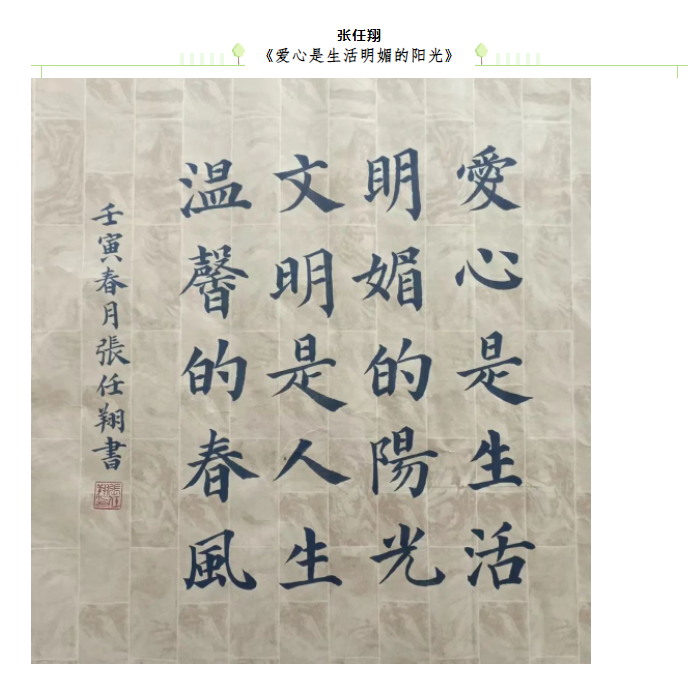 张任翔
《爱心是生活明媚的阳光》
愛心是生活
明媚的陽光
文明是人生
温馨的春風
壬寅春月張任翔書